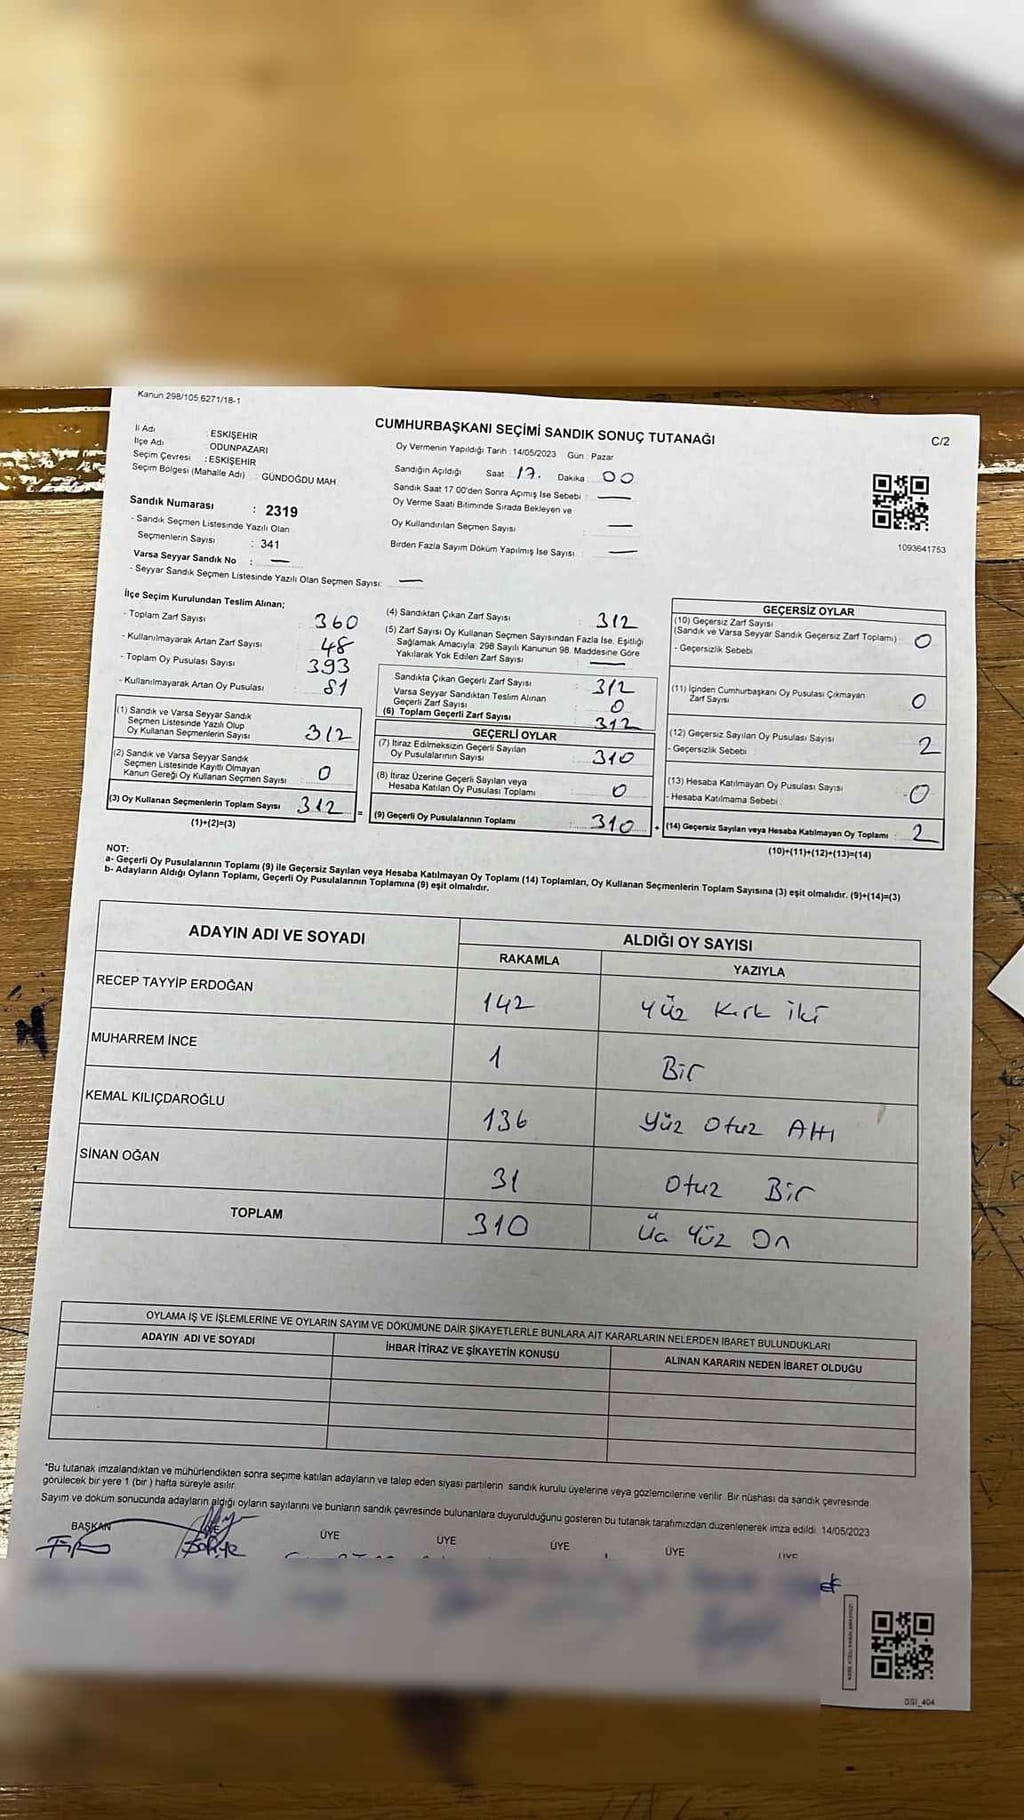 Kanun 298/105,6271/18-1
CUMHURBAŞKANI SEÇİMİ SANDIK SONUÇ TUTANAĞI
C/2
İl Adı : ESKİŞEHİR
İlçe Adı : ODUNPAZARI
Seçim Çevresi : ESKİŞEHİR
Seçim Bölgesi (Mahalle Adı) : GÜNDOĞDU MAH
Oy Vermenin Yapıldığı Tarih :14/05/2023 Gün : Pazar
Sandığın Açıldığı Saat 17. Dakika 00
Sandık Saat 17 00'den Sonra Açımış İse Sebebi : —
Oy Verme Saati Bitiminde Sırada Bekleyen ve
Oy Kullandırılan Seçmen Sayısı : —
Birden Fazla Sayım Döküm Yapılmış İse Sayısı : —
1093641753
Sandık Numarası : 2319
- Sandık Seçmen Listesinde Yazılı Olan
Seçmenlerin Sayısı : 341
Varsa Seyyar Sandık No : —
- Seyyar Sandık Seçmen Listesinde Yazılı Olan Seçmen Sayısı: —
İlçe Seçim Kurulundan Teslim Alınan;
- Toplam Zarf Sayısı : 360
- Kullanılmayarak Artan Zarf Sayısı : 48
- Toplam Oy Pusulası Sayısı : 393
- Kullanılmayarak Artan Oy Pusulası : 81
(1) Sandık ve Varsa Seyyar Sandık
Seçmen Listesinde Yazılı Olup
Oy Kullanan Seçmenlerin Sayısı : 312
(2) Sandık ve Varsa Seyyar Sandık
Seçmen Listesinde Kayıtlı Olmayan
Kanun Gereği Oy Kullanan Seçmen Sayısı : 0
(3) Oy Kullanan Seçmenlerin Toplam Sayısı : 312 =
(1)+(2)=(3)
(4) Sandıktan Çıkan Zarf Sayısı : 312
(5) Zarf Sayısı Oy Kullanan Seçmen Sayısından Fazla İse, Eşitliği
Sağlamak Amacıyla, 298 Sayılı Kanunun 98. Maddesine Göre
Yakılarak Yok Edilen Zarf Sayısı : —
Sandıkta Çıkan Geçerli Zarf Sayısı : 312
Varsa Seyyar Sandıktan Teslim Alınan
Geçerli Zarf Sayısı : 0
(6) Toplam Geçerli Zarf Sayısı : 312
GEÇERLİ OYLAR
(7) İtiraz Edilmeksizin Geçerli Sayılan
Oy Pusulalarının Sayısı : 310
(8) İtiraz Üzerine Geçerli Sayılan veya
Hesaba Katılan Oy Pusulası Toplamı : 0
(9) Geçerli Oy Pusulalarının Toplamı : 310 +
GEÇERSİZ OYLAR
(10) Geçersiz Zarf Sayısı
(Sandık ve Varsa Seyyar Sandık Geçersiz Zarf Toplamı) : 0
- Geçersizlik Sebebi :
(11) İçinden Cumhurbaşkanı Oy Pusulası Çıkmayan
Zarf Sayısı : 0
(12) Geçersiz Sayılan Oy Pusulası Sayısı : 2
- Geçersizlik Sebebi :
(13) Hesaba Katılmayan Oy Pusulası Sayısı : 0
- Hesaba Katılmama Sebebi :
(14) Geçersiz Sayılan veya Hesaba Katılmayan Oy Toplamı : 2
(10)+(11)+(12)+(13)=(14)
NOT:
a- Geçerli Oy Pusulalarının Toplamı (9) ile Geçersiz Sayılan veya Hesaba Katılmayan Oy Toplamı (14) Toplamları, Oy Kullanan Seçmenlerin Toplam Sayısına (3) eşit olmalıdır. (9)+(14)=(3)
b- Adayların Aldığı Oyların Toplamı, Geçerli Oy Pusulalarının Toplamına (9) eşit olmalıdır.
ADAYIN ADI VE SOYADI
ALDIĞI OY SAYISI
RAKAMLA YAZIYLA
RECEP TAYYİP ERDOĞAN 142 Yüz Kırk iki
MUHARREM İNCE 1 Bir
KEMAL KILIÇDAROĞLU 136 Yüz Otuz Altı
SİNAN OĞAN 31 Otuz Bir
TOPLAM 310 Üç Yüz On
OYLAMA İŞ VE İŞLEMLERİNE VE OYLARIN SAYIM VE DÖKÜMÜNE DAİR ŞİKAYETLERLE BUNLARA AİT KARARLARIN NELERDEN İBARET BULUNDUKLARI
ADAYIN ADI VE SOYADI İHBAR İTİRAZ VE ŞİKAYETİN KONUSU ALINAN KARARIN NEDEN İBARET OLDUĞU
*Bu tutanak imzalandıktan ve mühürlendikten sonra seçime katılan adayların ve talep eden siyasi partilerin sandık kurulu üyelerine veya gözlemcilerine verilir. Bir nüshası da sandık çevresinde
görülecek bir yere 1 (bir ) hafta süreyle asılır.
Sayım ve döküm sonucunda adayların aldığı oyların sayılarını ve bunların sandık çevresinde bulunanlara duyurulduğunu gösteren bu tutanak tarafımızdan düzenlenerek imza edildi. 14/05/2023
BAŞKAN ÜYE ÜYE ÜYE ÜYE ÜYE
GSI_404